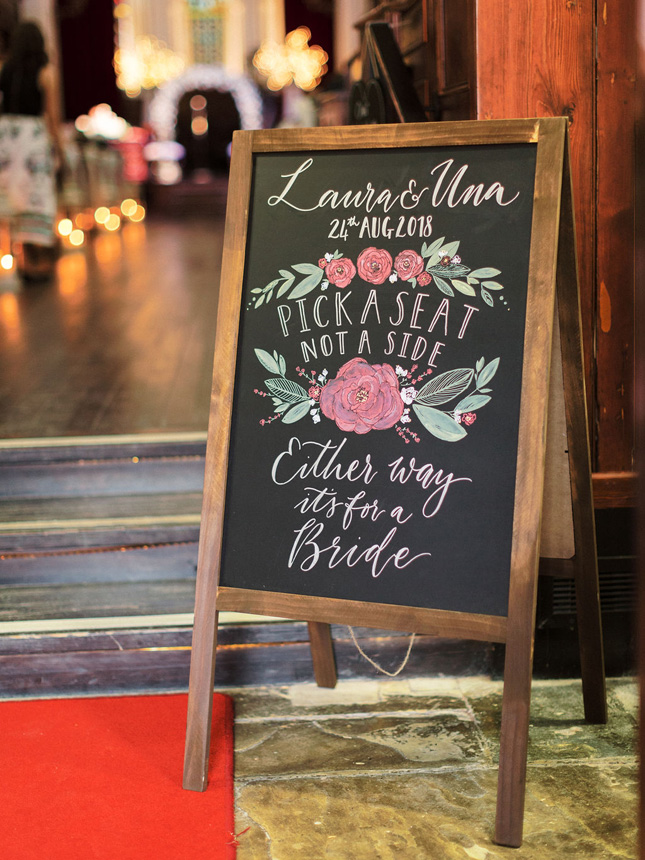 Laura & Una
24th AUG 2018
PICK A SEAT
NOT A SIDE
Either way
its for a
Bride